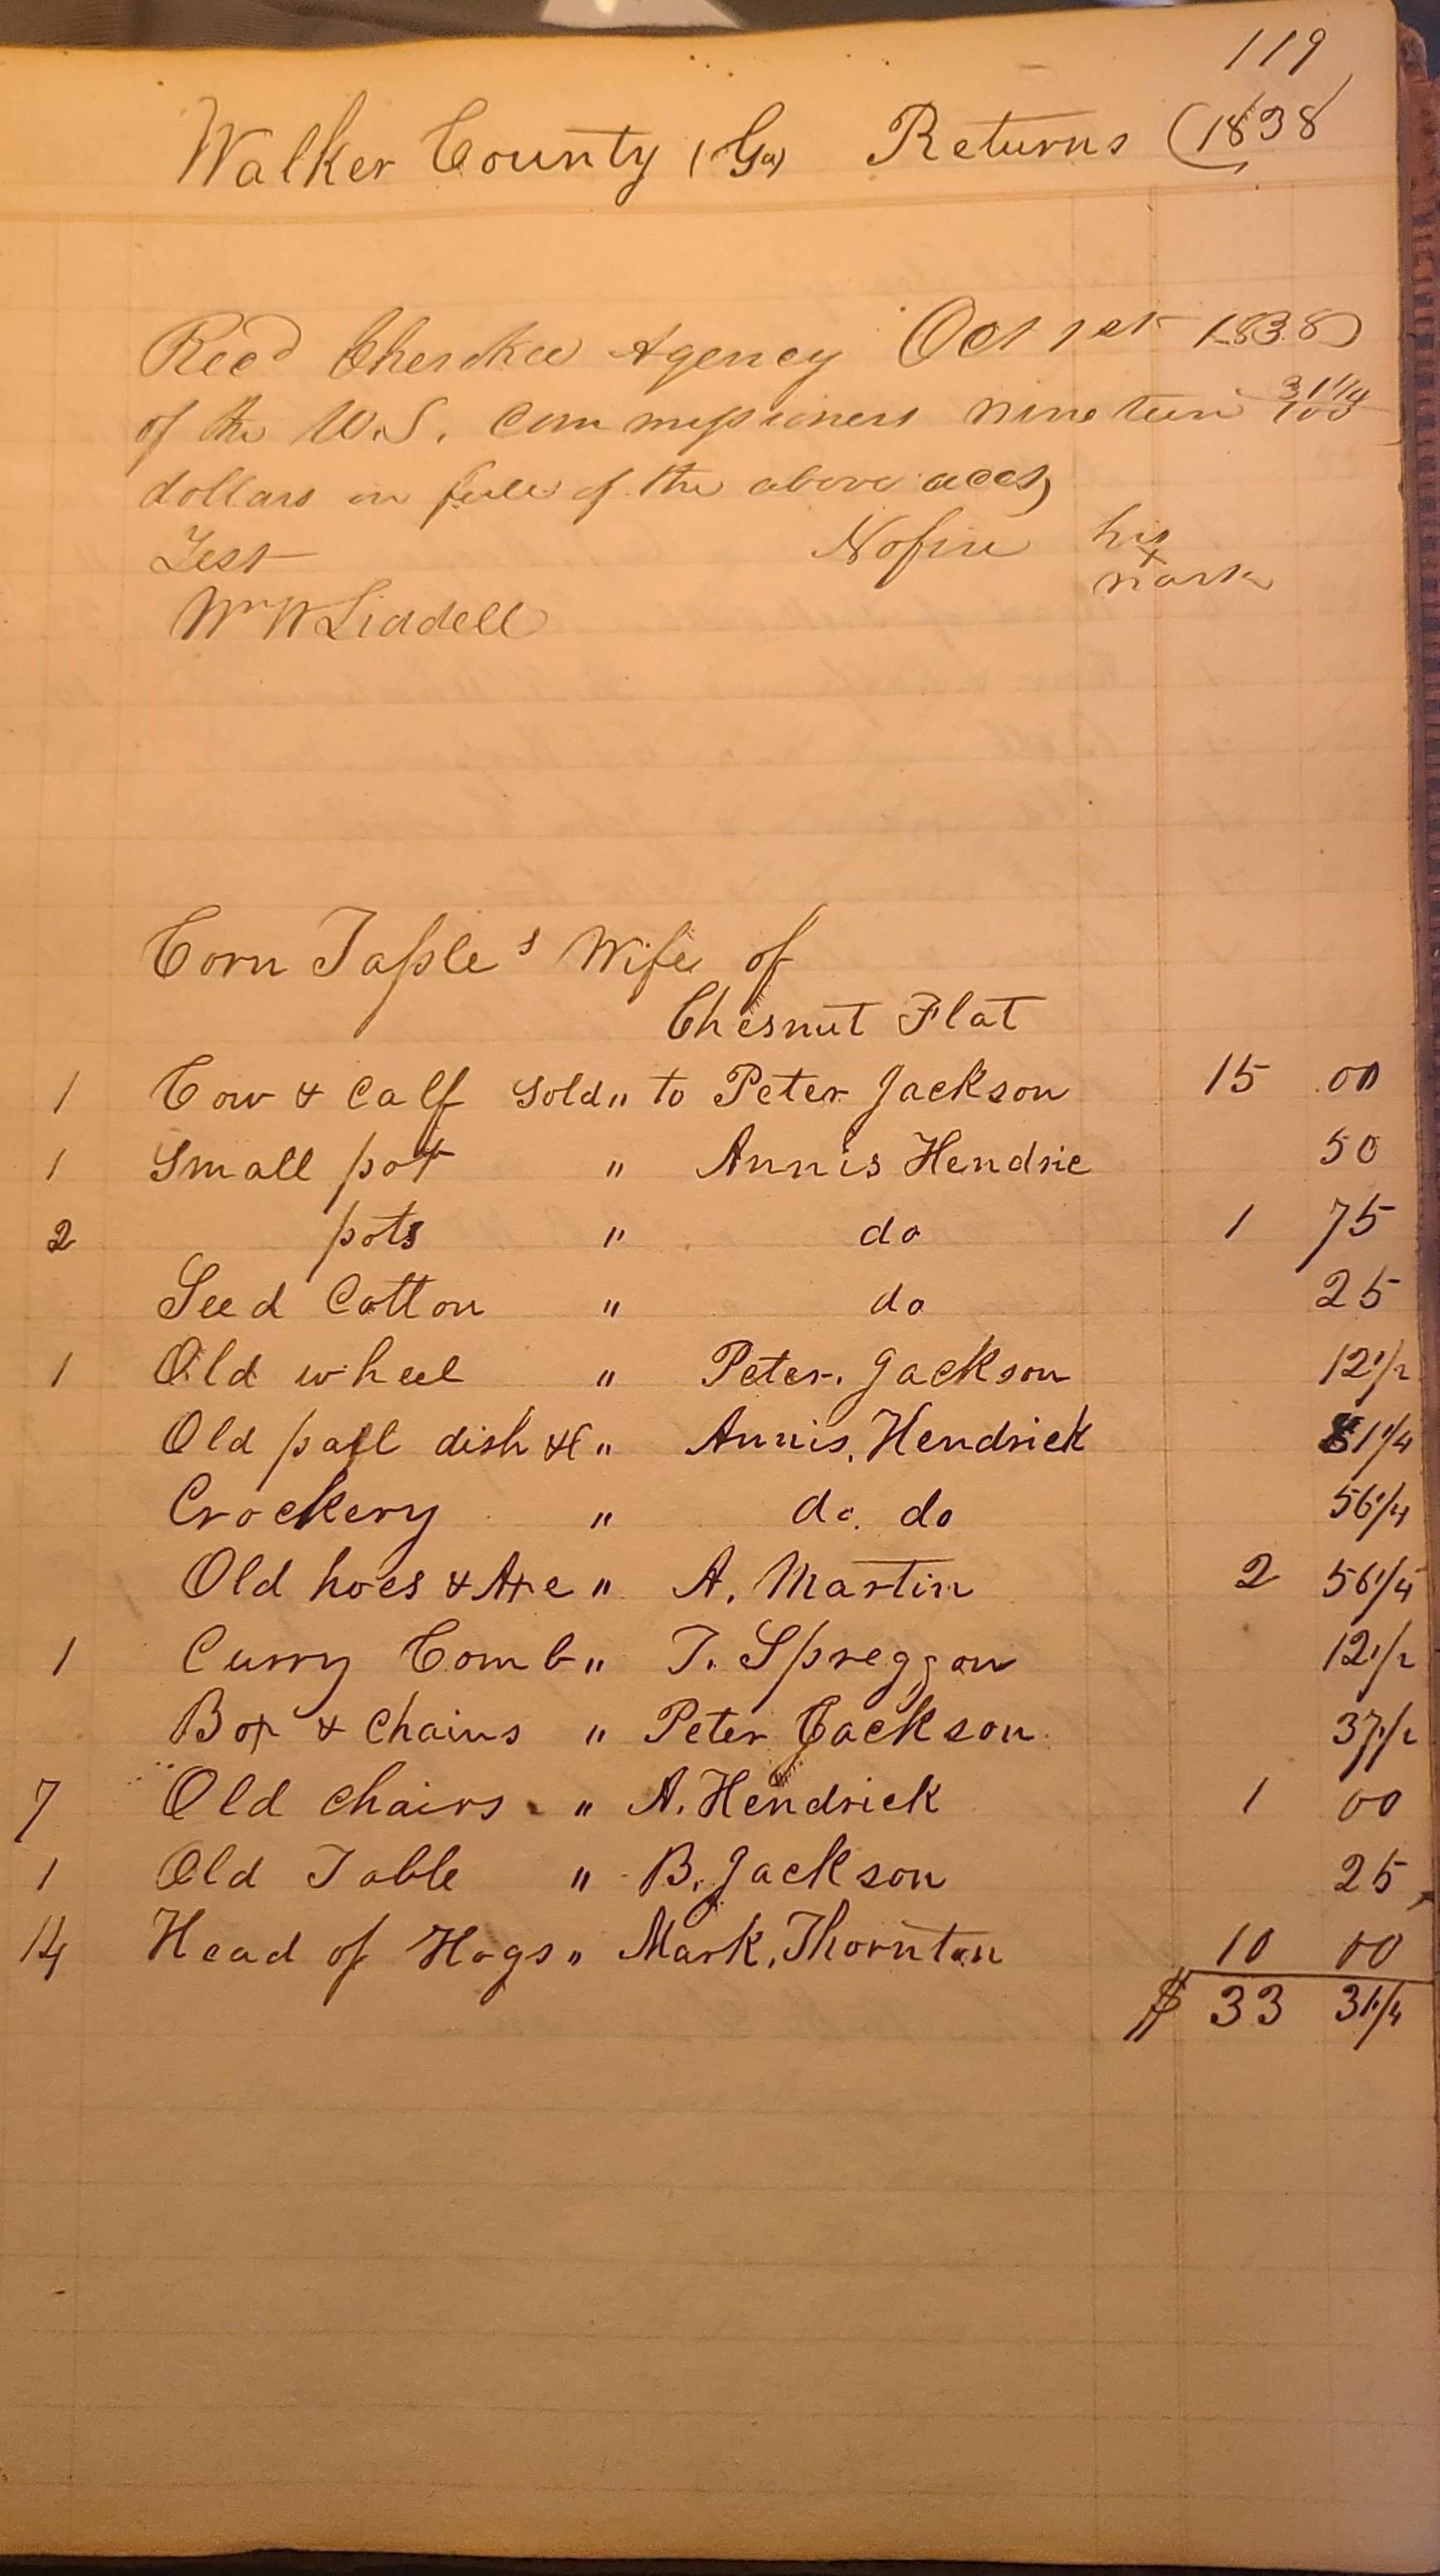 119
Walker County (Ga) Returns (1838
Recd Cherokee Agency Oct 1st 1838
of the U.S. Commissioners nineteen 31 1/4/100
dollars in full of the above acct,
Test Nofire his
x
mark
Wm W Liddell
Corn Tassle's Wife of
Chesnut Flat
1 Cow & Calf Sold " to Peter Jackson 15 00
1 Small pot " Annis Hendric 50
2 pots " do 1 75
Seed Cotton " do 25
1 Old wheel " Peter. Jackson 12 1/2
Old pail dish &c " Annis. Hendrick 81 1/4
Crockery " do. do 56 1/4
Old hoes & Axe " A. Martin 2 56 1/4
1 Curry Comb " T. Spreggon 12 1/2
Box & Chains " Peter Jackson 37 1/2
7 Old chairs " A. Hendrick 1 00
1 Old Table " B. Jackson 25
14 Head of Hogs " Mark. Thornton 10 00
$ 33 31 1/4